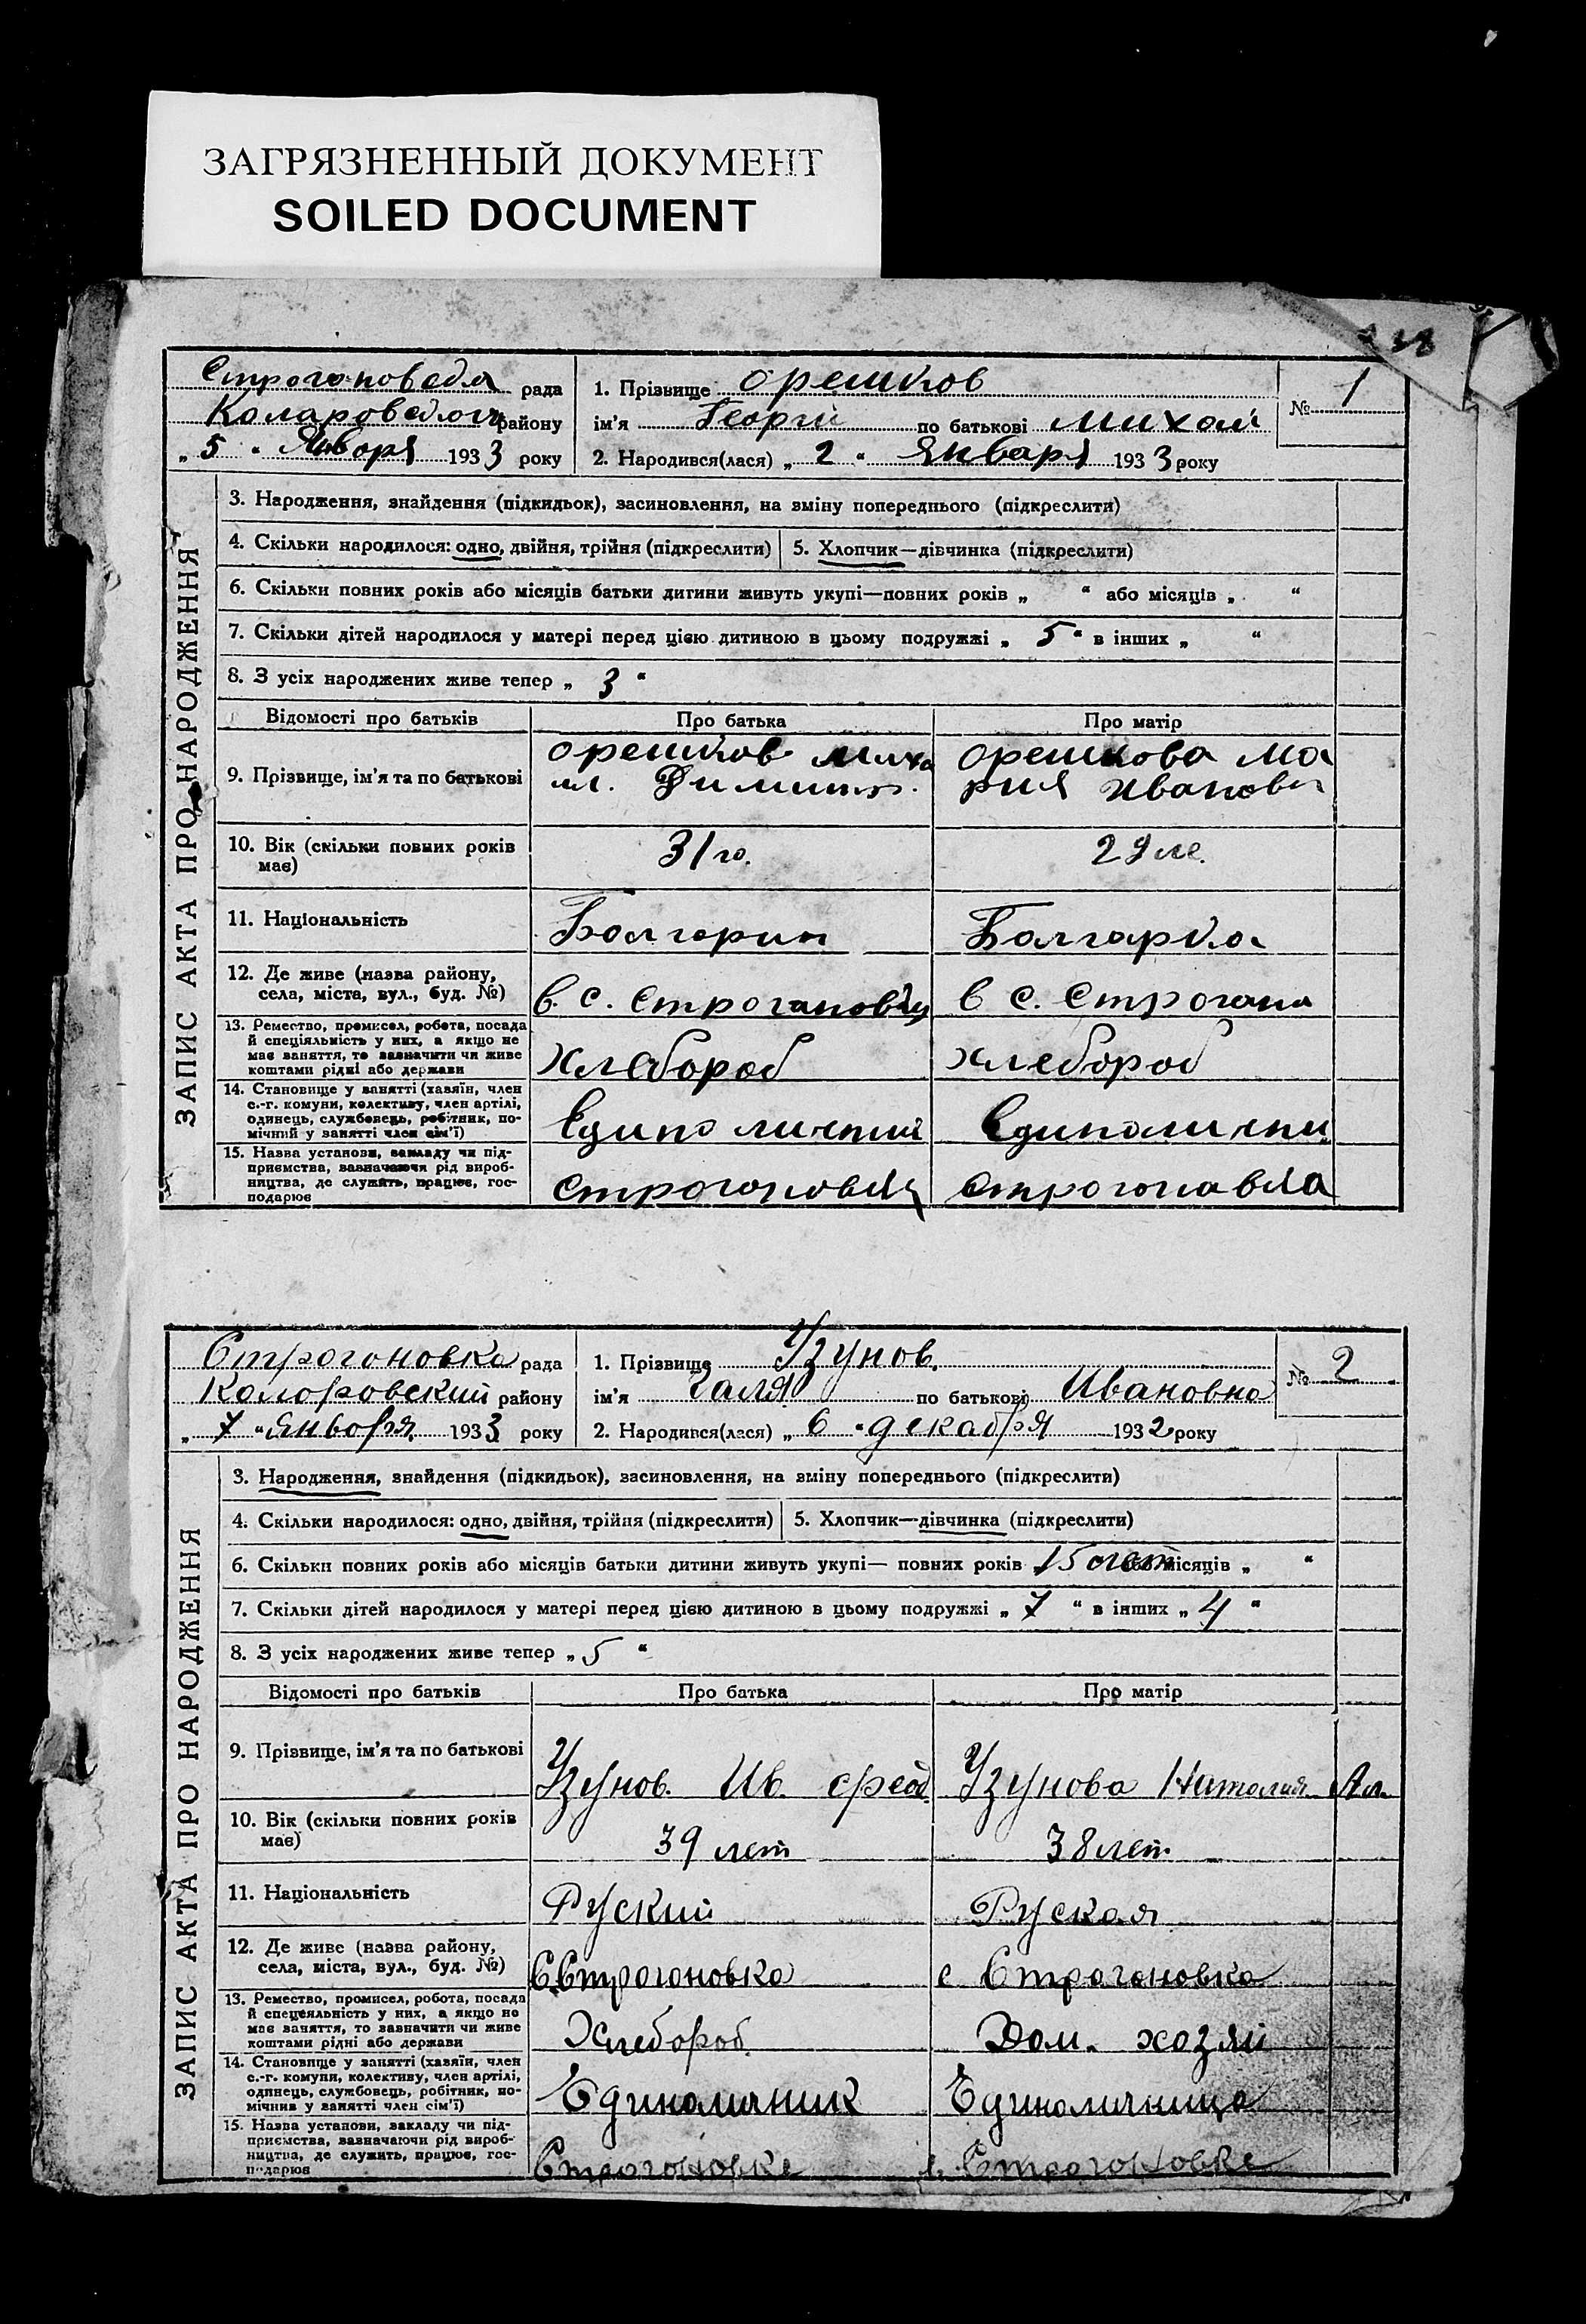 ЗАГРЯЗНЕННЫЙ ДОКУМЕНТ
SOILED DOCUMENT
рада
1. Прізвище Орешков
№ 1
району
ім'я Георгій по батькові Михай
„5“ Января 1933 року
2. Народився(лася) „2“ Января 1933 року
ЗАПИС АКТА ПРО НАРОДЖЕННЯ
3. Народження, знайдення (підкидьок), засиновлення, на зміну попереднього (підкреслити)
4. Скільки народилося: одно, двійня, трійня (підкреслити)
5. Хлопчик—дівчинка (підкреслити)
6. Скільки повних років або місяців батьки дитини живуть укупі—повних років „ “ або місяців „ “
7. Скільки дітей народилося у матері перед цією дитиною в цьому подружжі „5“ в інших „ “
8. З усіх народжених живе тепер „3“
Відомості про батьків
Про батька
Про матір
9. Прізвище, ім'я та по батькові
Орешков Миха
ил.
Орешкова Ма
рия Иванови
10. Вік (скільки повних років
має)
31 го.
29 ле.
11. Національність
Болгарин
Болгарка
12. Де живе (назва району,
села, міста, вул., буд. №)
в. с.
в с. Строгани
13. Ремество, промисел, робота, посада
й спеціяльність у них, а якщо не
має заняття, то зазначити чи живе
коштами рідні або держави
Хлебороб
хлебороб
14. Становище у занятті (хазяїн, член
с.-г. комуни, колективу, член артілі,
одинець, службовець, робітник, по-
мічний у занятті член сім'ї)
15. Назва установи, закладу чи під-
приємства, зазначаючи рід вироб-
ництва, де служить, працює, гос-
подарює
Строгоновка рада
1. Прізвище Узунов.
№ 2
Колоровский району
ім'я Галя по батькові Ивановна
„7“ января 1933 року
2. Народився(лася) „6“ декабря 1932 року
ЗАПИС АКТА ПРО НАРОДЖЕННЯ
3. Народження, знайдення (підкидьок), засиновлення, на зміну попереднього (підкреслити)
4. Скільки народилося: одно, двійня, трійня (підкреслити)
5. Хлопчик—дівчинка (підкреслити)
6. Скільки повних років або місяців батьки дитини живуть укупі— повних років 15 лет місяців „ “
7. Скільки дітей народилося у матері перед цією дитиною в цьому подружжі „7“ в інших „4“
8. З усіх народжених живе тепер „5“
Відомості про батьків
Про батька
Про матір
9. Прізвище, ім'я та по батькові
Узунов. Ив.
Узунова Наталия Ал.
10. Вік (скільки повних років
має)
39 лет
38 лет
11. Національність
Руский
Руская
12. Де живе (назва району,
села, міста, вул., буд. №)
С. Строгоновка
с Строгановка
13. Ремество, промисел, робота, посада
й спеціяльність у них, а якщо не
має заняття, то зазначити чи живе
коштами рідні або держави
Хлебороб
Дом. хозяй
14. Становище у занятті (хазяїн, член
с.-г. комуни, колективу, член артілі,
одинець, службовець, робітник, по-
мічник у занятті член сім'ї)
Единоличник
Единоличница
15. Назва установи, закладу чи під-
приємства, зазначаючи рід вироб-
ництва, де служить, працює, гос-
подарює
Строгоновке
в. Строгоновке